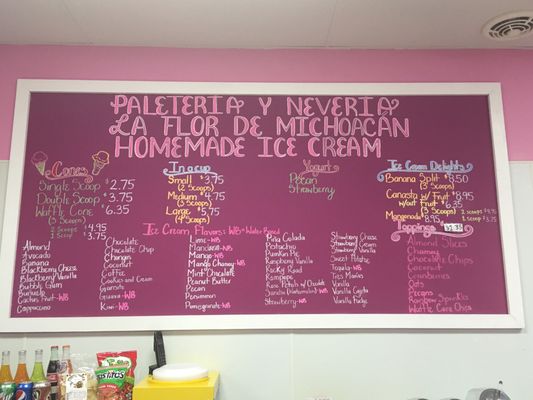 PALETERIA Y NEVERIA
LA FLOR DE MICHOACÁN
HOMEMADE ICE CREAM
Cones
Single Scoop $2.75
Double Scoop $3.75
Waffle Cone $6.35
(3 Scoops)
2 Scoop $4.95
1 Scoop $3.75
In a cup
Small $3.75
(2 Scoops)
Medium $4.75
(3 Scoops)
Large $5.75
(4 Scoops)
Yogurt
Pecan
Strawberry
Ice Cream Delights
Banana Split $8.50
(3 Scoops)
Canasta w/Fruit $8.95
w/out Fruit $6.35
(3 Scoops)
Mangonada $8.95
Toppings
Almond Slices
Charms
Chocolate Chips
Coconut
Cranberries
Oats
Pecans
Rainbow Sprinkles
Waffle Cone Chips
Ice Cream Flavors: WB=Water Based
Almond
Avocado
Banana
Blackberry Cheese
Blackberry Vanilla
Bubble Gum
Cactus Fruit-WB
Cappuccino
Chocolate
Chocolate Chip
Chongos
Coconut
Coffee
Cookies and Cream
Guanabana-WB
Kiwi-WB
Lime-WB
Mandarin-WB
Mango-WB
Mango Chamoy-WB
Mint Chocolate
Peanut Butter
Pecan
Persimmon
Pomegranate-WB
Piña Colada
Pistachio
Pumpkin Pie
Raspberry Vanilla
Rocky Road
Rompope
Rose Petals w/Chocolate
Sandia (Watermelon)-WB
Strawberry-WB
Strawberry Cheese
Strawberry Cream
Strawberry Vanilla
Sweet Potato
Tequila-WB
Tres Marias
Vanilla
Vanilla Cajeta
Vanilla Fudge